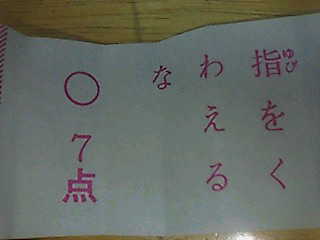 指ゆびをく
わえる
な
〇7点